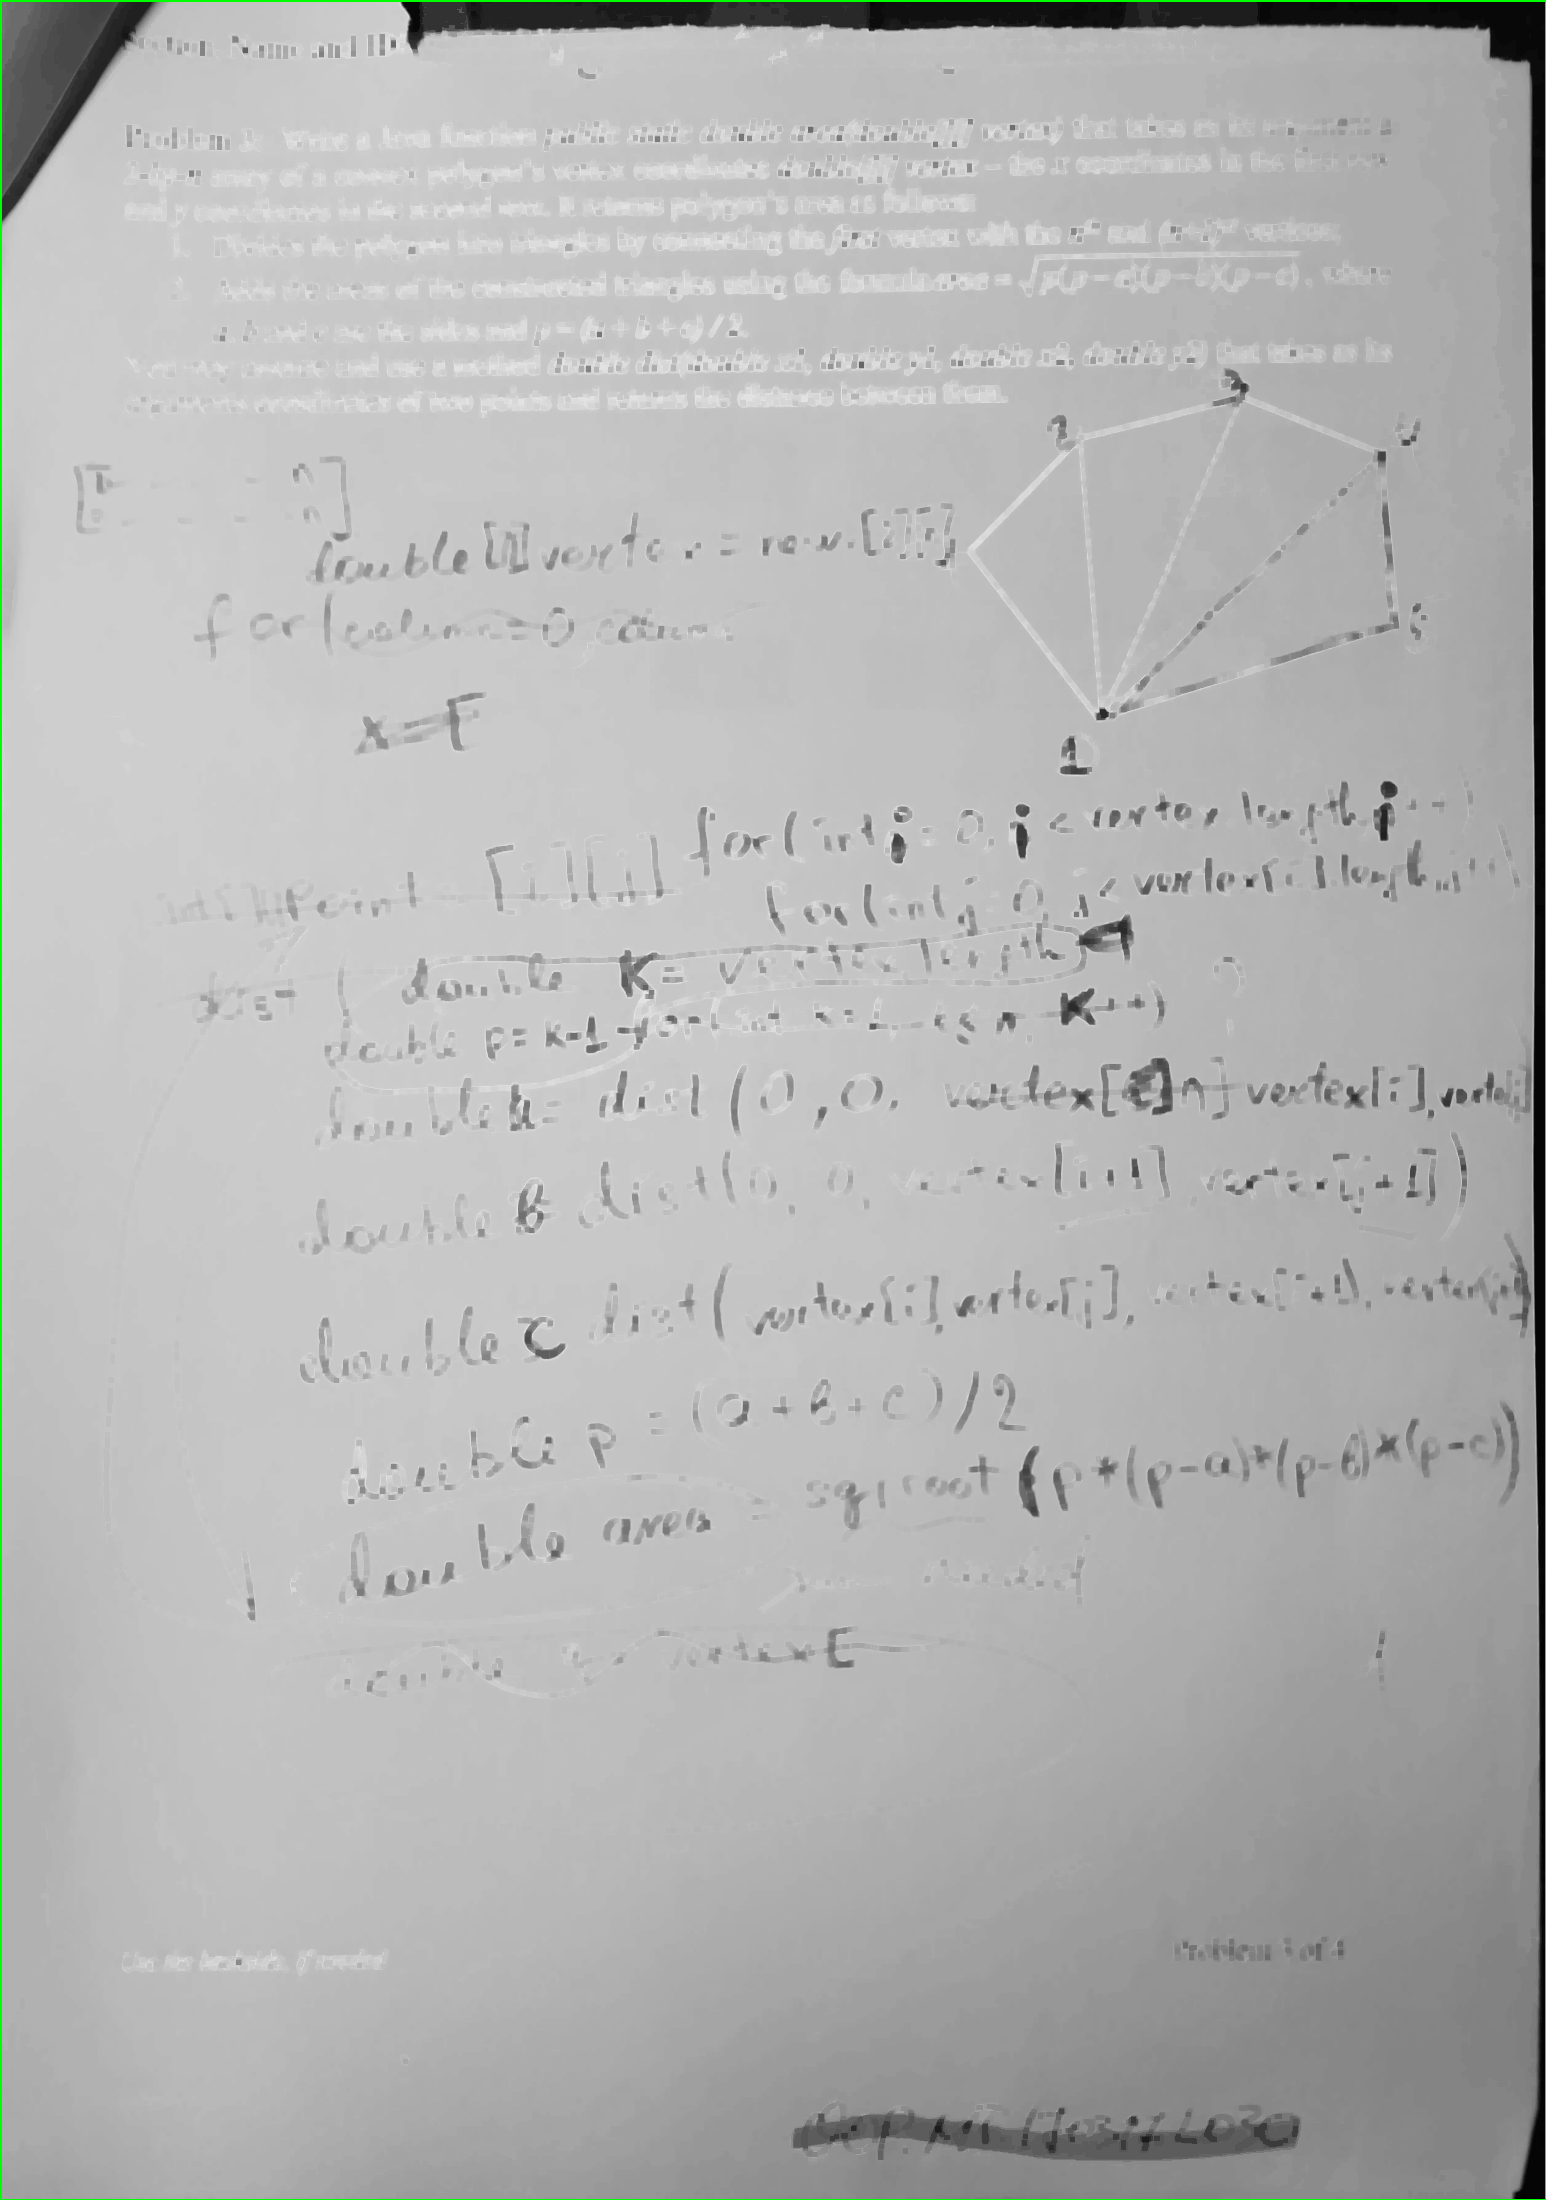 Section, Name and ID
Problem 3: Write a Java function public static double area(double[][] vertex) that takes as its argument a
2-by-n array of a convex polygon's vertex coordinates double[][] vertex – the x coordinates in the first row
and y coordinates in the second row. It returns polygon's area as follows:
1. Divides the polygon into triangles by connecting the first vertex with the and vertices;
2. Adds the areas of the constructed triangles using the formula area = √p(p − a)(p − b)(p − c), where
a, b and c are the sides and p = (a + b + c) / 2.
You may assume and use a method double dist(double x1, double y1, double x2, double y2) that takes as its
arguments coordinates of two points and returns the distance between them.
3
2
4
n
n
double [][] vertex = new [2][n]
5
for(column=0, column
x = [
1
for(int i = 0, i < vertex.length, i++)
int[][] Point = [i][j]
for(int j = 0, j < vertex[i].length, j++)
dist ( double K = vertex length - 1
double p = K-1 for(int K++)
double a = dist (0, 0, vertex[ n] vertex[i], vertex[j]
double B dist(0, 0, vertex[i+1], vertex[j+1])
double c dist (vertex[i], vertex[j], vertex[i+1], vertex[j+1])
double p = (a + b + c) / 2
double area = sqrroot (p * (p-a) * (p-b) * (p-c))
double vertex [
Use the backside, if needed
Problem 3 of 4